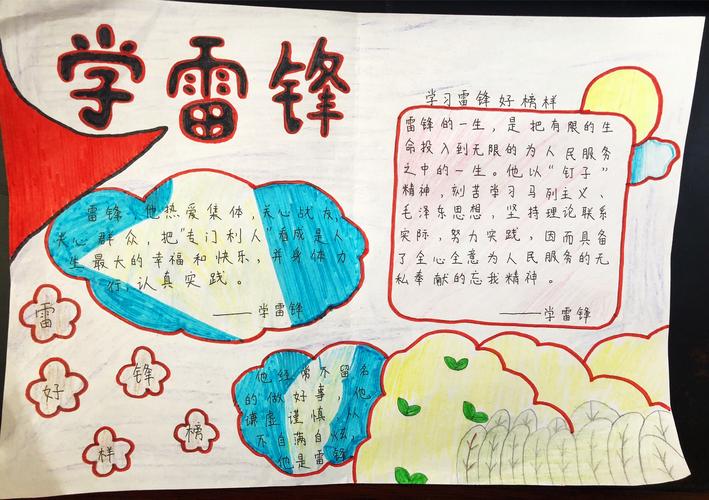 学雷锋
学习雷锋好榜样
雷锋的一生，是把有限的生
命投入到无限的为人民服务
之中的一生。他以“钉子”
精神，刻苦学习马列主义、
毛泽东思想，坚持理论联系
实际，努力实践，因而具备
了全心全意为人民服务的无
私奉献的忘我精神。
——学雷锋
雷锋，他热爱集体，关心战友，
关心群众，把“专门利人”看成是人
生最大的幸福和快乐，并身体力
行，认真实践。
——学雷锋
雷
锋
好
榜
样
他经常不留名
的做好事，他
谦虚谨慎，从
不自满自炫，
他是雷锋